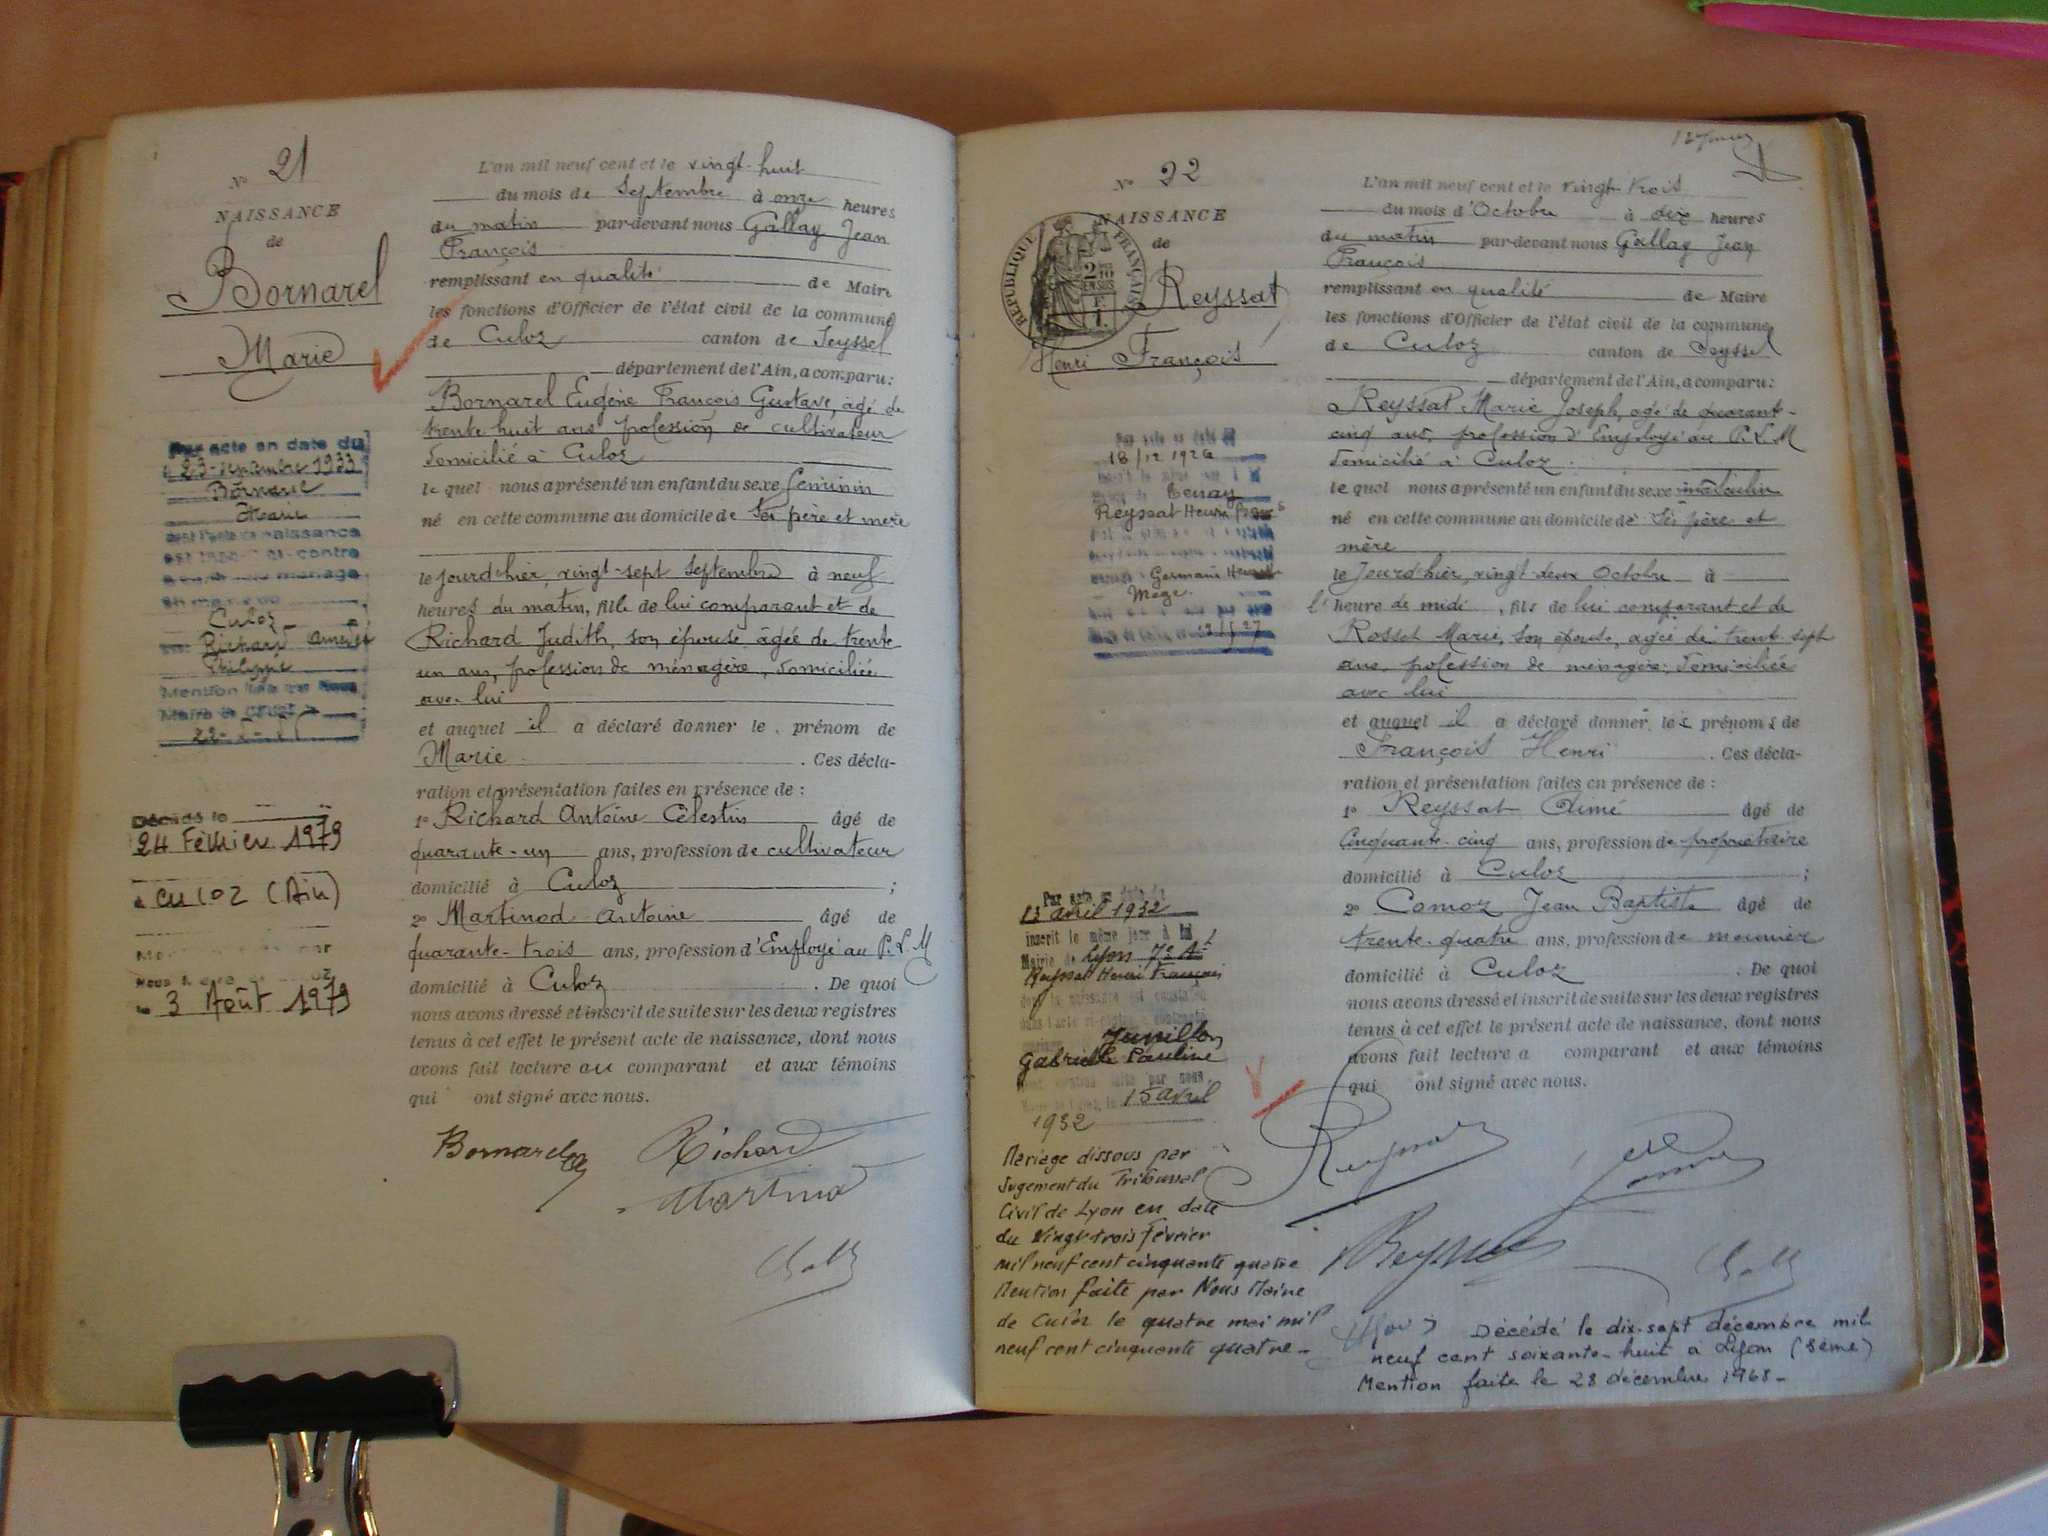 N° 21
NAISSANCE
de
Bornarel
Marie
Par acte en date du
23 septembre 1933
Bornarel
Marie
est inscrit ci-contre
Culoz
Richard
Philippe
Mention
Décédé le
24 Février 1979
à CULOZ (Ain)
le 3 Août 1979
L'an mil neuf cent et le vingt-huit
du mois de Septembre à onze heures
du matin par-devant nous Gallay Jean
François
remplissant en qualité de Maire
les fonctions d'Officier de l'état civil de la commune
de Culoz canton de Seyssel
département de l'Ain, a comparu:
Bornarel Eugène François Gustave, âgé de
trente huit ans profession de cultivateur
domicilié à Culoz
le quel nous a présenté un enfant du sexe féminin
né en cette commune au domicile de ses père et mère
le jourd'hier, vingt-sept Septembre à neuf
heures du matin, fille de lui comparant et de
Richard Judith, son épouse âgée de trente
un ans, profession de ménagère, domiciliée
avec lui
et auquel il a déclaré donner le prénom de
Marie. Ces décla-
ration et présentation faites en présence de :
1° Richard Antoine Célestin âgé de
quarante-un ans, profession de cultivateur
domicilié à Culoz ;
2° Martinod Antoine âgé de
quarante-trois ans, profession d'Employé au P.L.M
domicilié à Culoz. De quoi
nous avons dressé et inscrit de suite sur les deux registres
tenus à cet effet le présent acte de naissance, dont nous
avons fait lecture au comparant et aux témoins
qui ont signé avec nous.
Bornarel
Richard
Martinod
N° 22
NAISSANCE
de
RÉPUBLIQUE FRANÇAISE
Reyssat
Henri François
18/12 1926
Tenay
Reyssat Henri François
Germain
Par acte en date du
13 avril 1932
inscrit le même jour à la
Mairie de Lyon 7e At
Reyssat Henri François
Gabrielle Pauline
15 avril
1932
Mariage dissous par
Jugement du Tribunal
Civil de Lyon en date
du Vingt trois Février
mil neuf cent cinquante quatre
Mention faite par Nous Maire
de Culoz le quatre mai mil
neuf cent cinquante quatre -
L'an mil neuf cent et le vingt-trois
du mois d'Octobre à dix heures
du matin par-devant nous Gallay Jean
François
remplissant en qualité de Maire
les fonctions d'Officier de l'état civil de la commune
de Culoz canton de Seyssel
département de l'Ain, a comparu:
Reyssat Marie Joseph, âgé de quarant-
cinq ans, profession d'Employé au P.L.M
domicilié à Culoz.
le quel nous a présenté un enfant du sexe masculin
né en cette commune au domicile de ses père et
mère
le Jourd'hier, vingt deux Octobre à
l'heure de midi, fils de lui comparant et de
Rosset Marie, son épouse, agée de trente sept
ans, profession de ménagère, domiciliée
avec lui
et auquel il a déclaré donner les prénoms de
François Henri. Ces décla-
ration et présentation faites en présence de :
1° Reyssat Aimé âgé de
Cinquante-cinq ans, profession de propriétaire
domicilié à Culoz ;
2° Comoz Jean Baptiste âgé de
trente-quatre ans, profession de meunier
domicilié à Culoz. De quoi
nous avons dressé et inscrit de suite sur les deux registres
tenus à cet effet le présent acte de naissance, dont nous
avons fait lecture a comparant et aux témoins
qui ont signé avec nous.
Décédé le dix-sept décembre mil
neuf cent soixante-huit à Lyon (8ème)
Mention faite le 28 décembre 1968.-